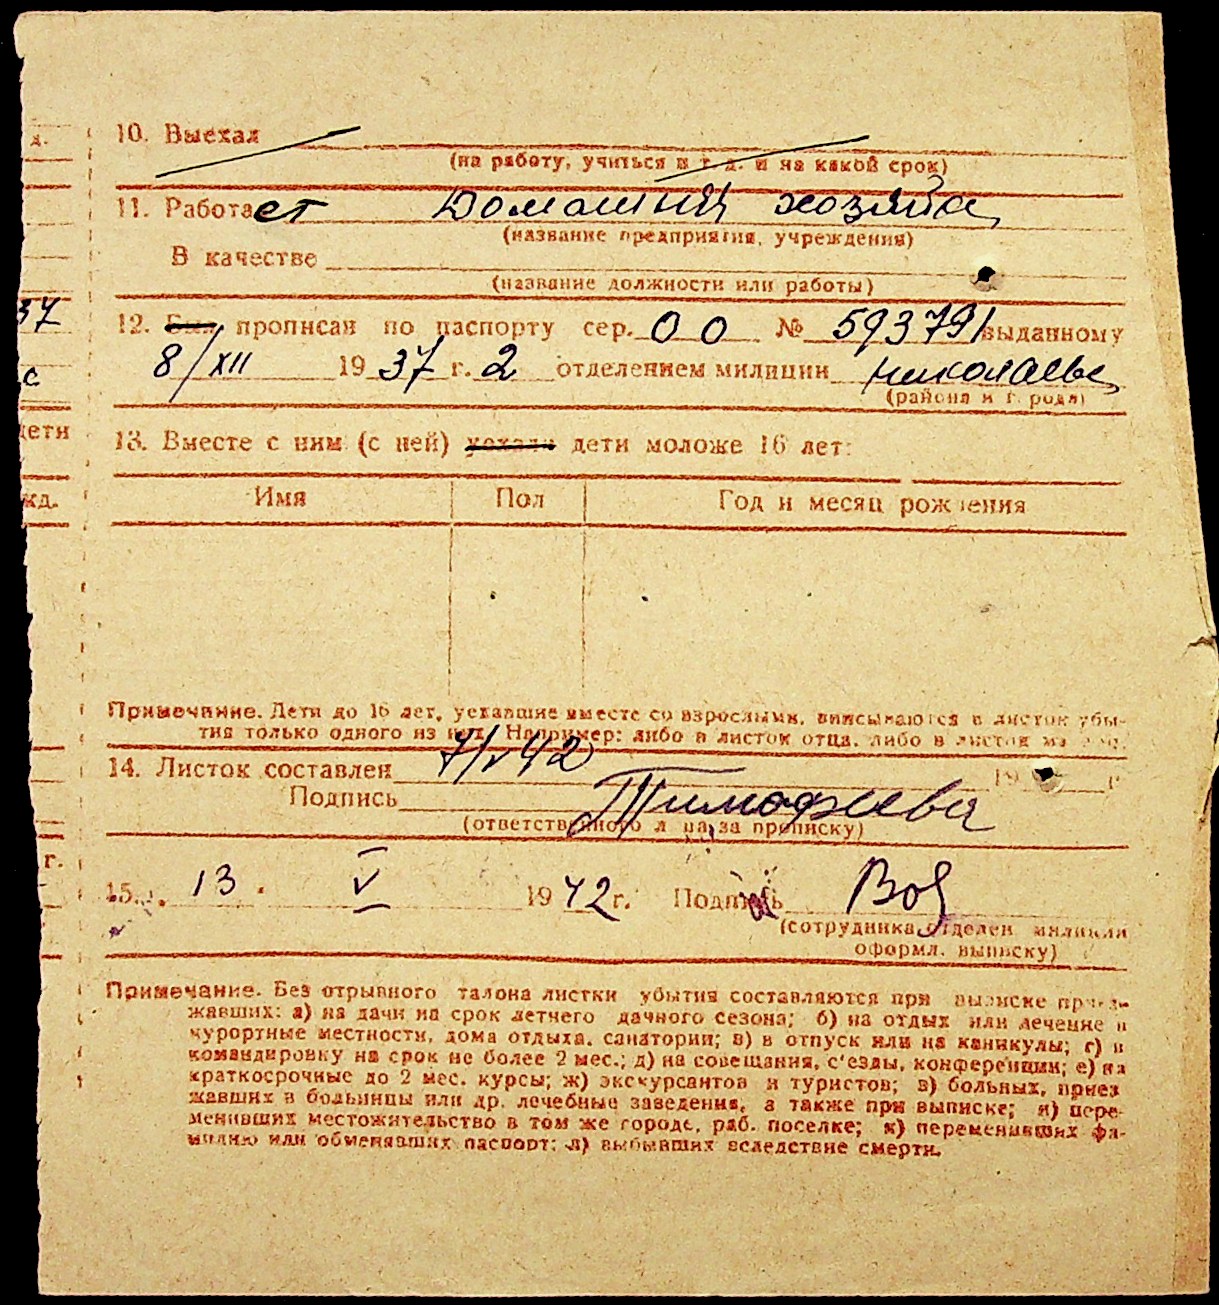 д.
10. Выехал
(на работу, учиться и т. д. и на какой срок)
11. Работает Домашняя хозяйка
(название предприятия, учреждения)
В качестве
(название должности или работы)
37
12. Был прописан по паспорту сер. 00 № 593791 выданному
8/XII 1937 г. 2 отделением милиции Николаевс
с
(района и города)
дети
13. Вместе с ним (с ней) уехали дети моложе 16 лет:
жд.
Имя Пол Год и месяц рождения
Примечание. Дети до 16 лет, уехавшие вместе со взрослыми, вписываются в листок убы-
тия только одного из них. Например: либо в листок отца, либо в листок
7/V 42
14. Листок составлен 19 г.
Подпись Тимофеева
(ответственного лица за прописку)
г.
15. 13. V 1942 г. Подпись
(сотрудника отделен милиции
оформл. выписку)
Примечание. Без отрывного талона листки убытия составляются при выписке приез-
жавших: а) на дачи на срок летнего дачного сезона; б) на отдых или лечение в
курортные местности, дома отдыха, санатории; в) в отпуск или на каникулы; г) в
командировку на срок не более 2 мес.; д) на совещания, с'езды, конференции; е) на
краткосрочные до 2 мес. курсы; ж) экскурсантов и туристов; з) больных, приез
жавших в больницы или др. лечебные заведения, а также при выписке; и) пере-
менивших местожительство в том же городе, раб. поселке; к) переменивших фа-
милию или обменявших паспорт; л) выбывших вследствие смерти.